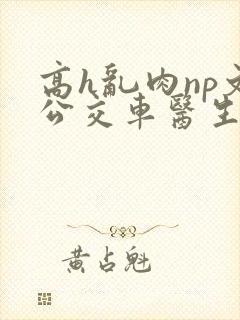 高h亂肉np文
公交車醫生
黃占魁